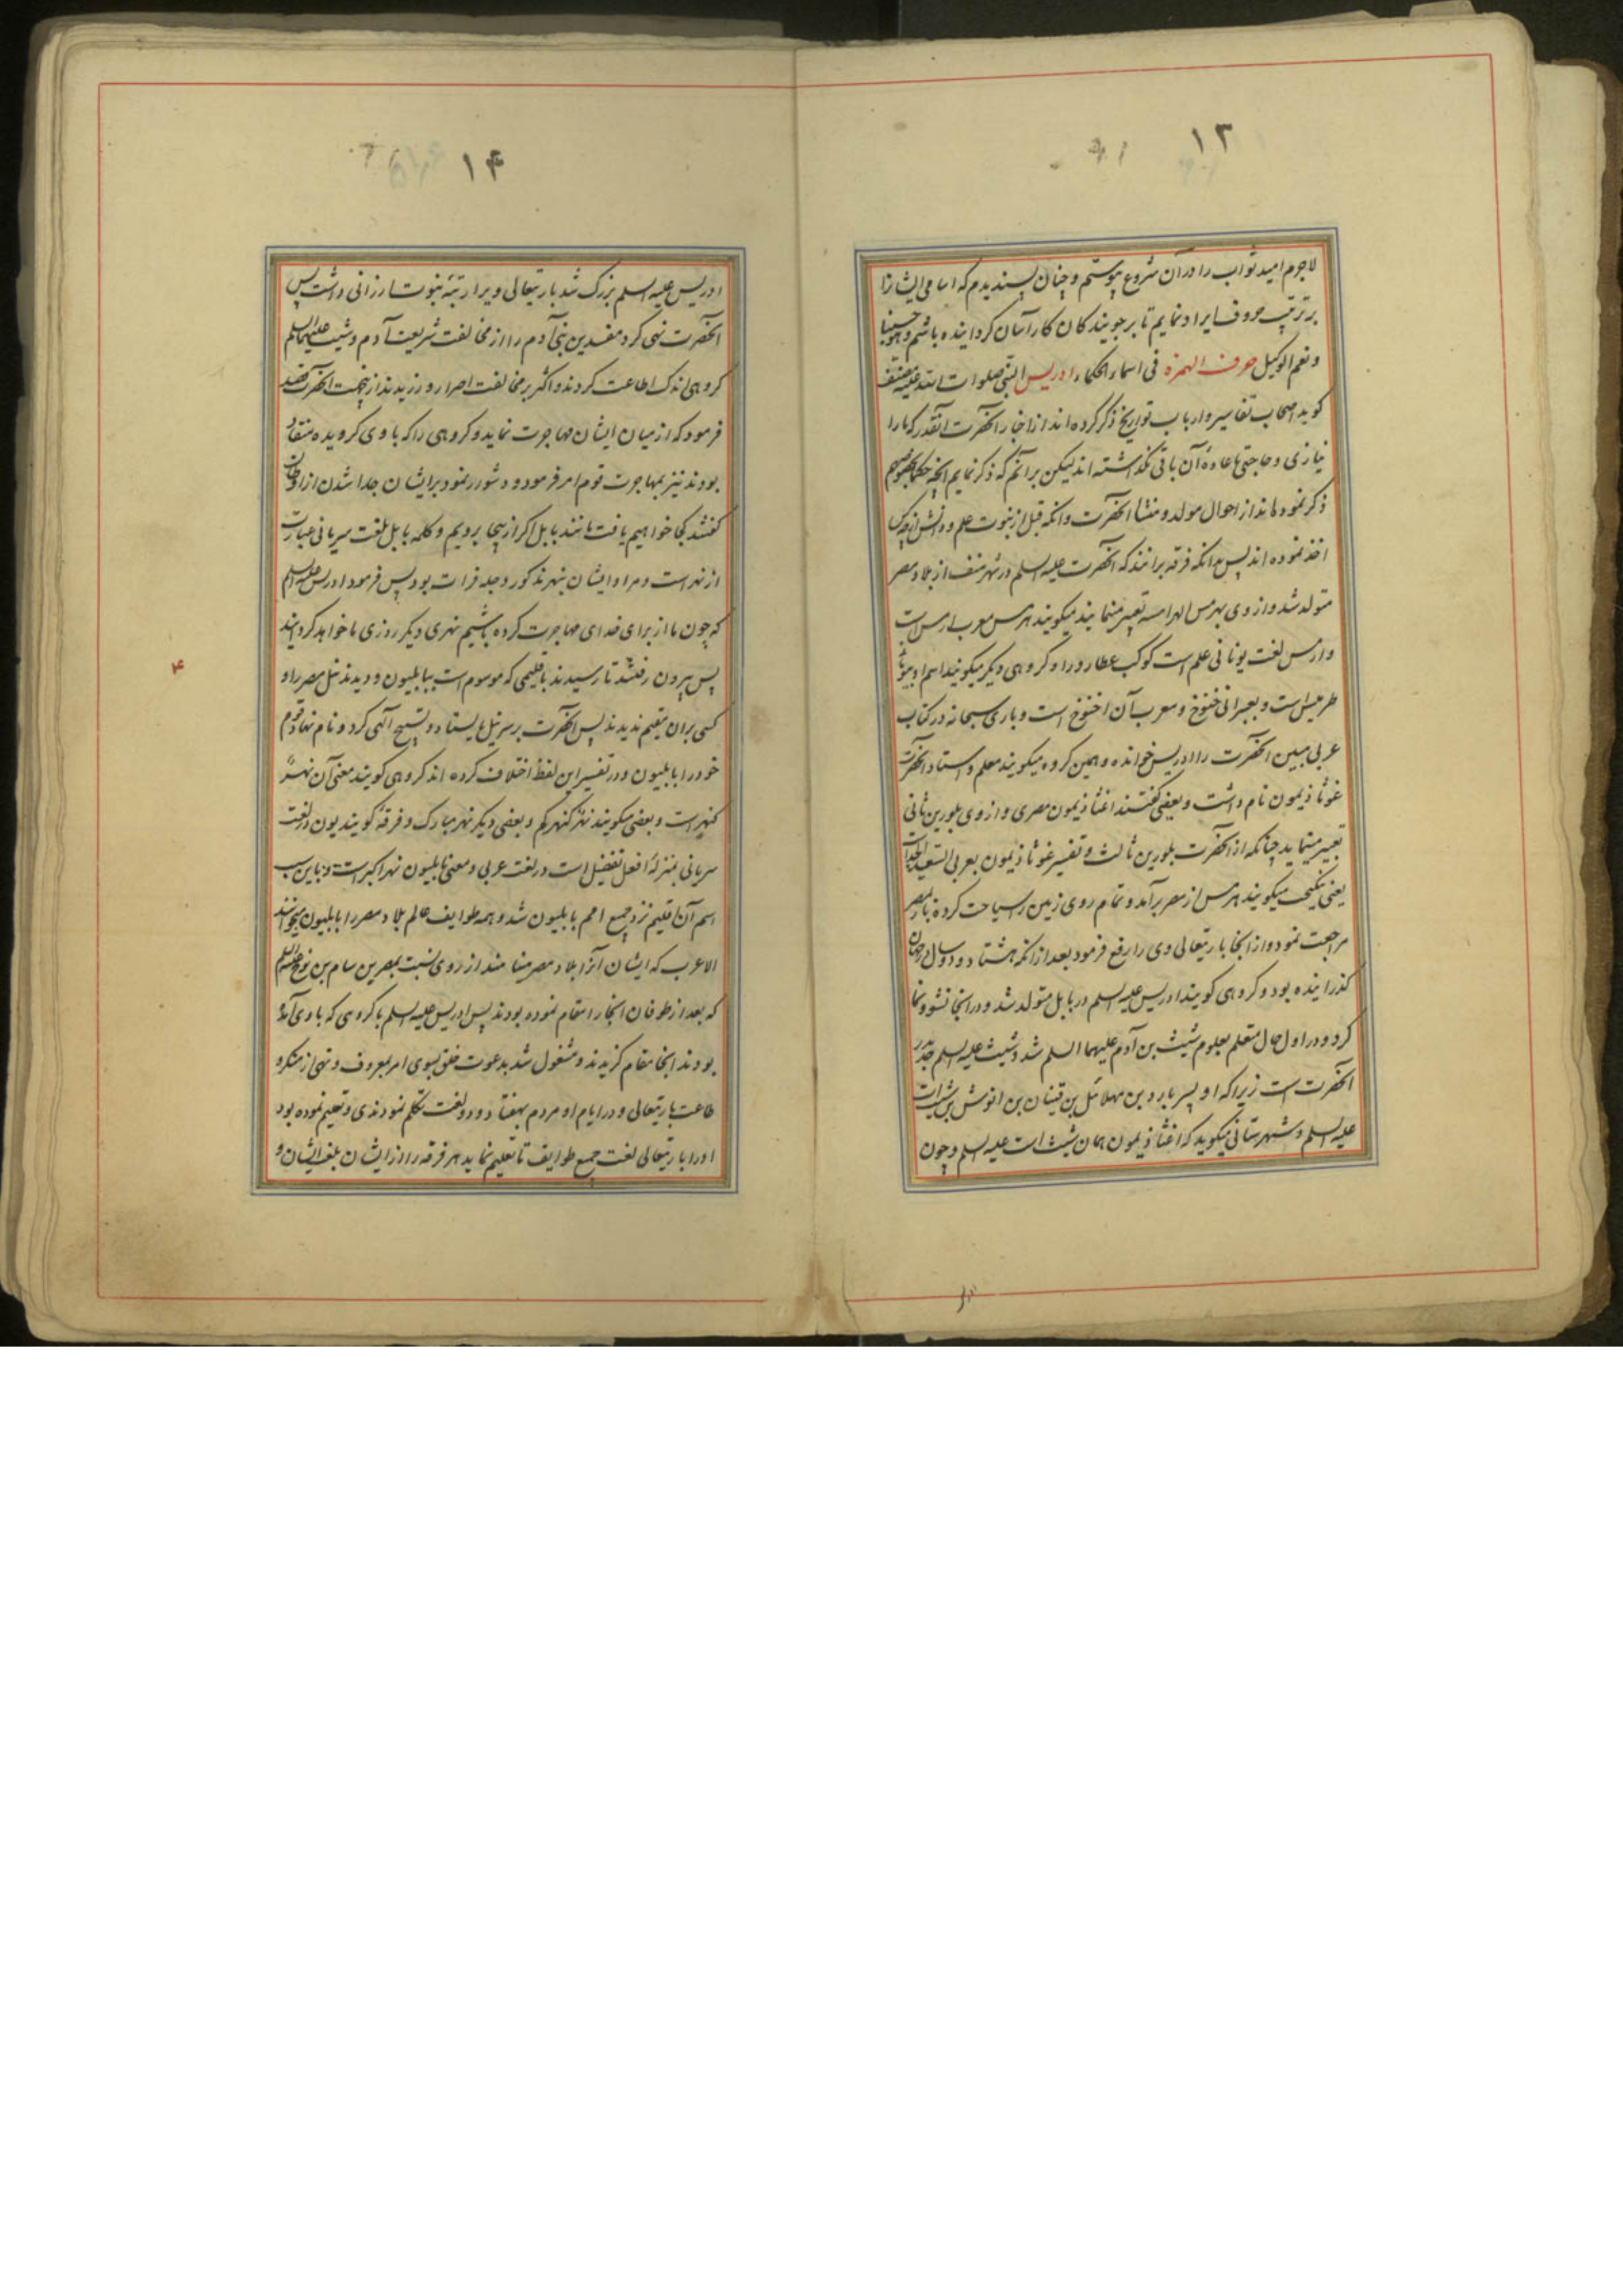 ۱۳
لاجرم امید ثواب را در آن شروع پیوستم و چنان پسندیدم که اسامی ایشان را
بر ترتیب حروف ایراد نمایم تا بر جویندکان کار آسان کردانیده باشم و هو حسبنا
و نعم الوکیل حرف الهمزه فی اسماء الحکماء ادریس النبی صلوات الله علیه مصنف
کوید اصحاب تفاسیر و ارباب تواریخ ذکر کرده اند از اخبار آنحضرت آنقدر که ما را
نیازی و حاجتی باعاده آن باقی نکذاشته اند لیکن برآنم که ذکر نمایم آنچه حکما بخصوصهم
ذکر نموده اند از احوال مولد و منشا آنحضرت و آنکه قبل از نبوت علم و دانش از چه کس
اخذ نموده اند پس بدانکه فرقه برانند که آنحضرت علیه السلم در شهر منف از بلاد مصر
متولد شد و از وی بهرمس الهرامسه تعبیر مینمایند میکویند هرمس معرب ارمس است
و ارمس لغت یونانی علم است کوکب عطارد را و کروهی دیکر میکویند اسم او بیونانی
طرمیس است و بعبرانی خنوخ و معرب آن اخنوخ است و باری سبحانه در کتاب
عربی مبین آنحضرت را ادریس خوانده و همین کروه میکویند معلم و استاد آنحضرت
غوثاذیمون نام داشت و بعضی کفتند اغثاذیمون مصری و از وی بلورین ثانی
تعبیر مینماید چنانکه از آنحضرت بلورین ثالث و تفسیر غوثاذیمون بعربی السعید الجد است
یعنی نیکبخت میکویند هرمس از مصر برآمد و تمام روی زمین را سیاحت کرده باز بمصر
مراجعت نمود و از آنجا باریتعالی وی را رفع فرمود بعد از آنکه هشتاد و دو سال در جهان
کذرانیده بود و کروهی کویند ادریس علیه السلم در بابل متولد شد و در آنجا نشو و نما
کرد و در اول حال متعلم بعلوم شیث بن آدم علیهما السلم شد و شیث علیه السلم جد پدر
آنحضرت است زیرا که او پسر یارد بن مهلائل بن قینان بن انوش بن شیث است
علیه السلم و شهرستانی میکوید که اغثاذیمون همان شیث است علیه السلم و چون
۱۴
ادریس علیه السلم بزرک شد باریتعالی ویرا رتبه نبوت ارزانی داشت پس
آنحضرت نهی کرد مفسدین بنی آدم را از مخالفت شریعت آدم و شیث علیهما السلم
کروهی اندک اطاعت کردند و اکثر بر مخالفت اصرار ورزیدند ازینجهت آنحضرت قصد
فرمود که از میان ایشان مهاجرت نماید و کروهی را که باوی کرویده منقاد
بودند نیز بمهاجرت قوم امر فرمود و دشوار نمود بر ایشان جدا شدن از اوطان
کفتند کجا خواهیم یافت مانند بابل اکر از اینجا برویم و کلمه بابل بلغت سریانی عبارت
از نهر است و مراد ایشان بنهر مذکور دجله فرات بود پس فرمود ادریس علیه السلم
که چون ما از برای خدای مهاجرت کرده باشیم نهری دیکر روزی ما خواهد کردانید
پس بیرون رفتند تا رسیدند باقلیمی که موسوم است ببابلیون و دیدند نیل مصر را و
کسی بران مقیم ندیدند پس آنحضرت بر سر نیل بایستاد و تسبیح الهی کرد و نام نهاد قوم
خود را بابلیون و در تفسیر این لفظ اختلاف کرده اند کروهی کویند معنی آن نهر
کنهر است و بعضی میکویند نهر کنهرکم و بعضی دیکر نهر مبارک و فرقه کویند یون در لغت
سریانی بمنزله افعل تفضیل است در لغت عربی و معنی بابلیون نهر اکبر است و باین سبب
اسم آن اقلیم نزد جمیع امم بابلیون شد و همه طوایف عالم بلاد مصر را بابلیون میخوانند
الا عرب که ایشان آنرا بلاد مصر مینامند از روی نسبت بمصر بن سام بن نوح علیه السلم
که بعد از طوفان آنجا را مقام نموده بودند پس ادریس علیه السلم با کروهی که باوی آمده
بودند آنجا مقام کزیدند و مشغول شد بدعوت خلق بسوی امر بمعروف و نهی از منکر و
طاعت باریتعالی و در ایام او مردم بهفتاد و دو لغت تکلم نمودندی و تعلیم نموده بود
او را باریتعالی لغت جمیع طوایف تا تعلیم نماید هر فرقه را از ایشان بلغت ایشان و
۴